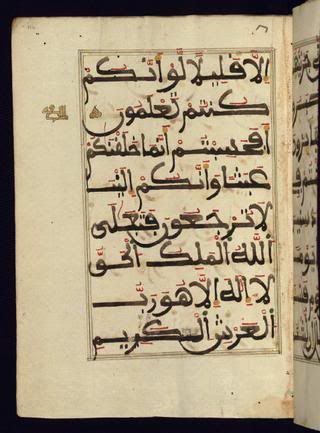 إلا قليلا لو أنكم
كنتم تعلمون
أفحسبتم أنما خلقنكم
عبثا وأنكم إلينا
لا ترجعون فتعلى
الله الملك الحق
لا إله إلا هو رب
العرش الكريم